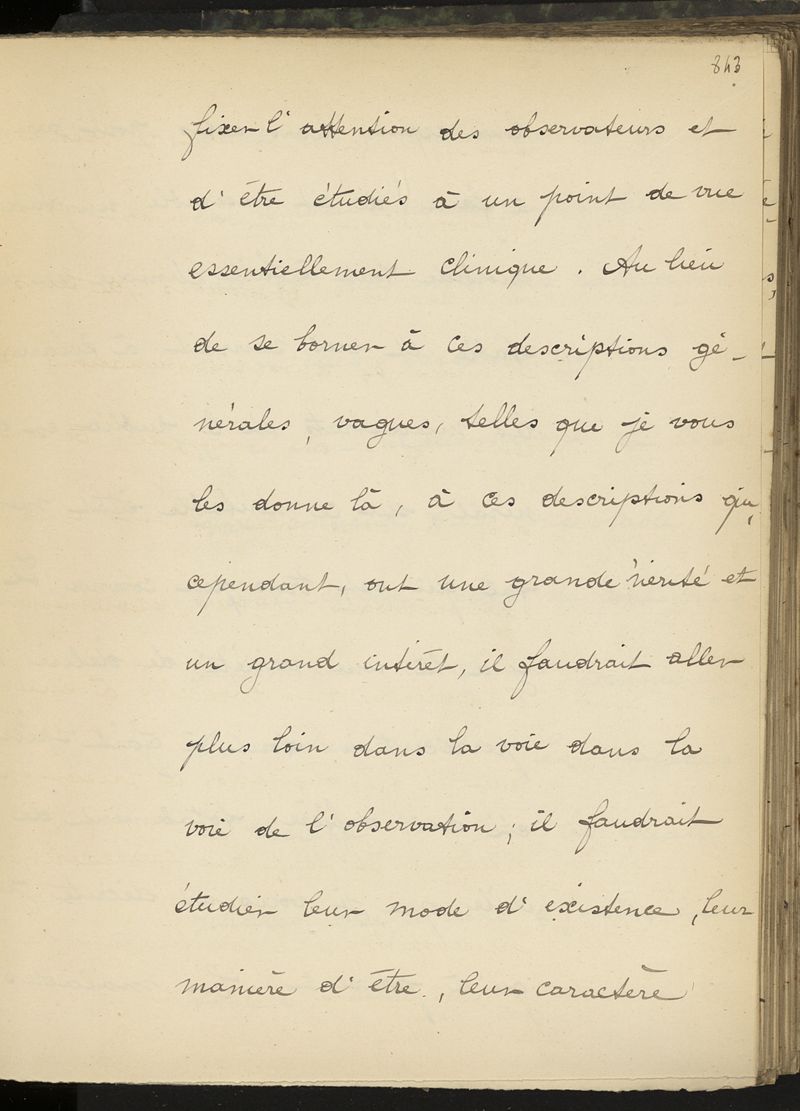 843
fixer l'attention des observateurs et
d'être étudiés à un point de vue
essentiellement clinique. Au lieu
de se borner à ces descriptions gé-
nérales, vagues, telles que je vous
les donne là, à ces descriptions qui,
cependant, ont une grande vérité et
un grand intérêt, il faudrait aller
plus loin dans la voie dans la
voie de l'observation; il faudrait
étudier leur mode d'existence, leur
manière d'être, leur caractère